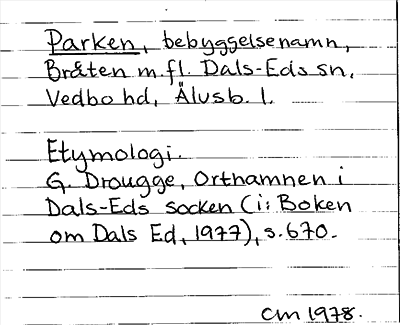 Parken, bebyggelsenamn,
Bråten m.fl. Dals-Eds sn,
Vedbo hd, Älvsb. l.
Etymologi.
G. Drougge, Ortnamnen i
Dals-Eds socken (i: Boken
om Dals Ed, 1977), s. 670.
CM 1978.